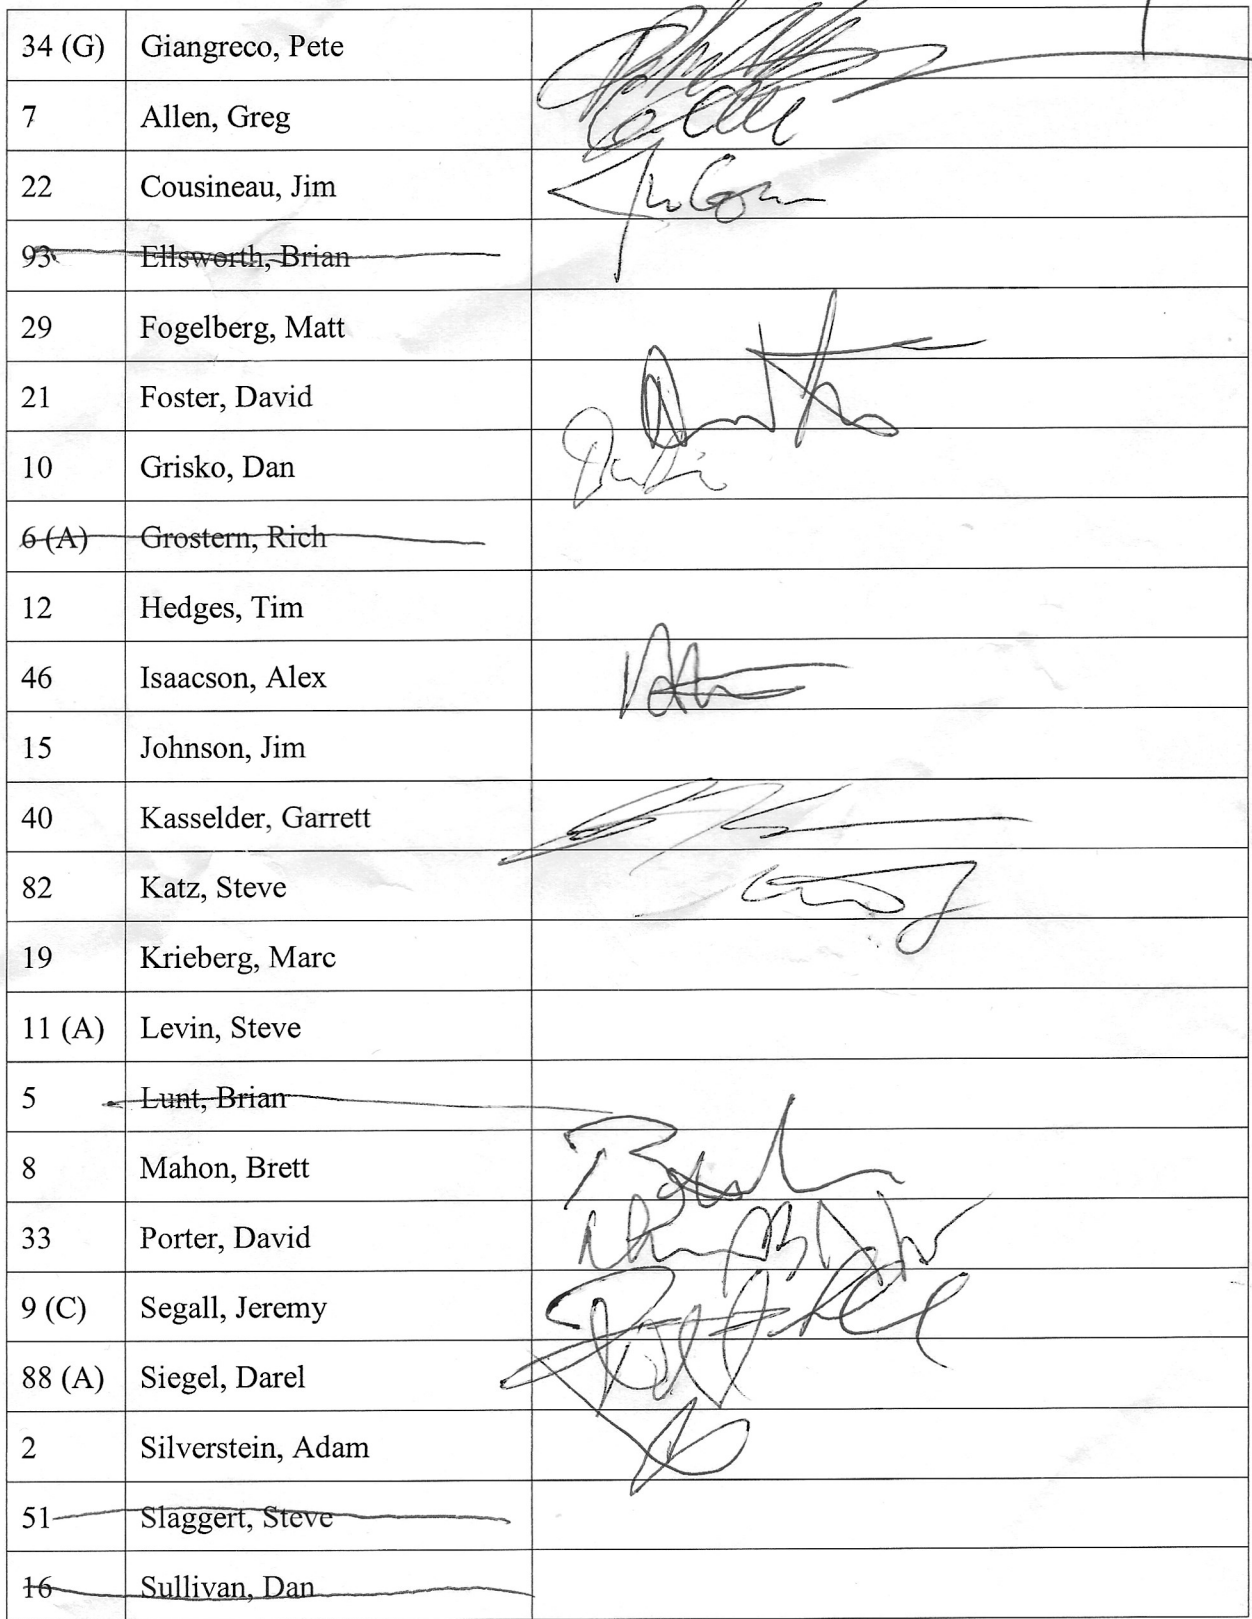 34 (G) Giangreco, Pete
7 Allen, Greg
22 Cousineau, Jim
93 Ellsworth, Brian
29 Fogelberg, Matt
21 Foster, David
10 Grisko, Dan
6 (A) Grostern, Rich
12 Hedges, Tim
46 Isaacson, Alex
15 Johnson, Jim
40 Kasselder, Garrett
82 Katz, Steve
19 Krieberg, Marc
11 (A) Levin, Steve
5 Lunt, Brian
8 Mahon, Brett
33 Porter, David
9 (C) Segall, Jeremy
88 (A) Siegel, Darel
2 Silverstein, Adam
51 Slaggert, Steve
16 Sullivan, Dan